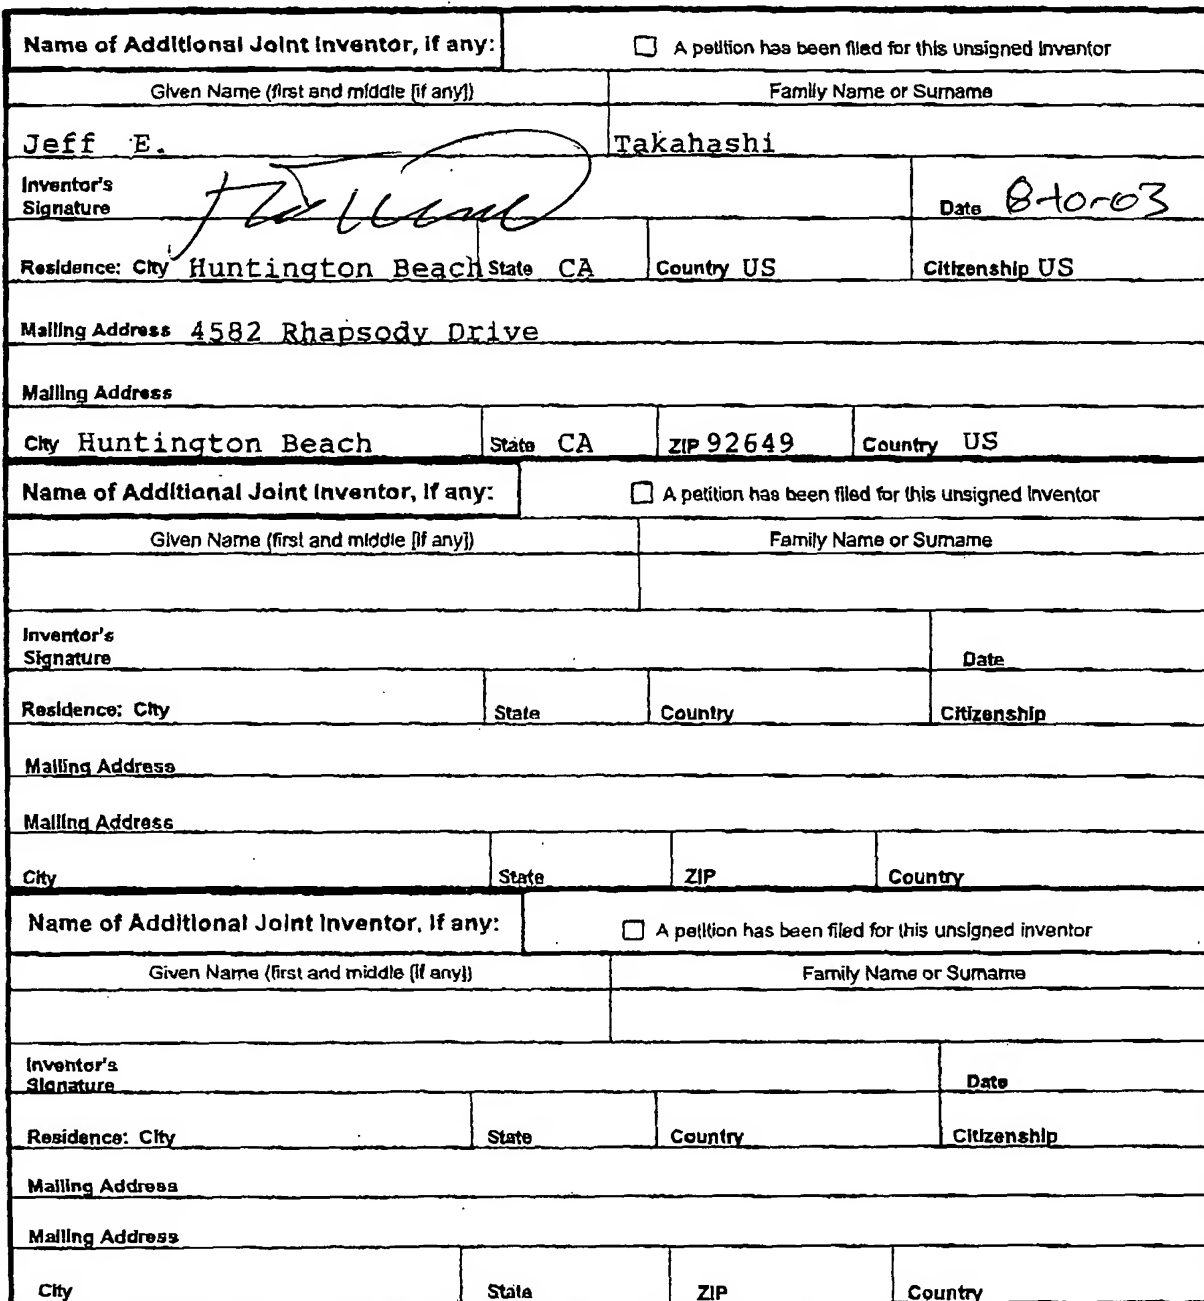 Name of Additional Joint Inventor, if any: A petition has been filed for this unsigned inventor
Given Name (first and middle [if any]) Family Name or Surname
Jeff E. Takahashi
Inventor's
Signature Date 8-10-03
Residence: City Huntington Beach State CA Country US Citizenship US
Mailing Address 4582 Rhapsody Drive
Mailing Address
City Huntington Beach State CA ZIP 92649 Country US
Name of Additional Joint Inventor, if any: A petition has been filed for this unsigned inventor
Given Name (first and middle [if any]) Family Name or Surname
Inventor's
Signature Date
Residence: City State Country Citizenship
Mailing Address
Mailing Address
City State ZIP Country
Name of Additional Joint Inventor, if any: A petition has been filed for this unsigned inventor
Given Name (first and middle [if any]) Family Name or Surname
Inventor's
Signature Date
Residence: City State Country Citizenship
Mailing Address
Mailing Address
City State ZIP Country